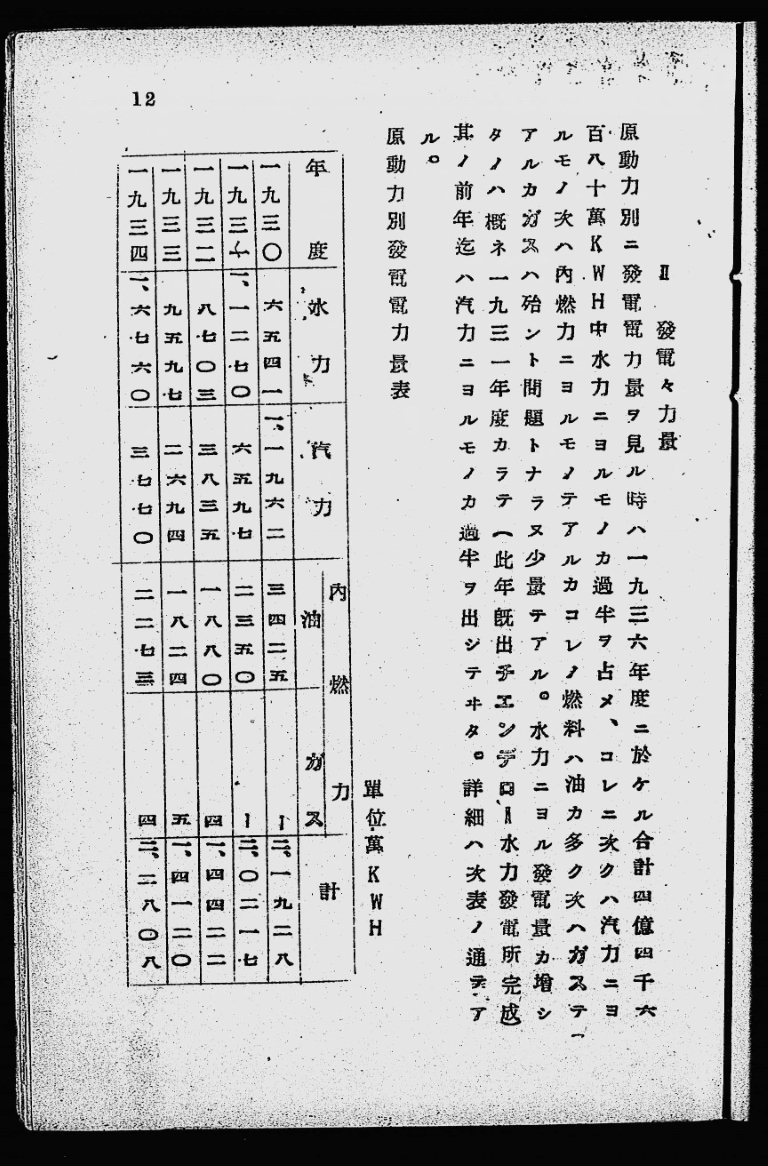 12
Ⅱ 發電々力量
原動力別ニ發電電力量ヲ見ル時ハ一九三六年度ニ於ケル合計四億四千六
百八十萬KWH中水力ニヨルモノカ過半ヲ占メ、コレニ次クハ汽力ニヨ
ルモノ次ハ內燃力ニヨルモノテアルカコレノ燃料ハ油カ多ク次ハガステ
アルカガスハ殆ント問題トナラヌ少量テアル。水力ニヨル發電量カ增シ
タノハ概ネ一九三一年度カラテ(此年既出チエンデロー水力發電所完成
其ノ前年迄ハ汽力ニヨルモノカ過半ヲ出シテヰタ。詳細ハ次表ノ通テア
ル。
原動力別發電電力量表
單位萬KWH
年度 水力 汽力 內燃力 油 ガス 計
一九三〇 六五四一 一、一九六二 三四二五 ー 二、一九二八
一九三一 一、一二七〇 六五九七 二三五〇 ー 二、〇二一七
一九三二 八七〇三 三八三五 一八八〇 四 一、四四二二
一九三三 九五九七 二六九四 一八二四 五 一、四一二〇
一九三四 一、六七六〇 三七七〇 二二七三 四 二、二八〇八